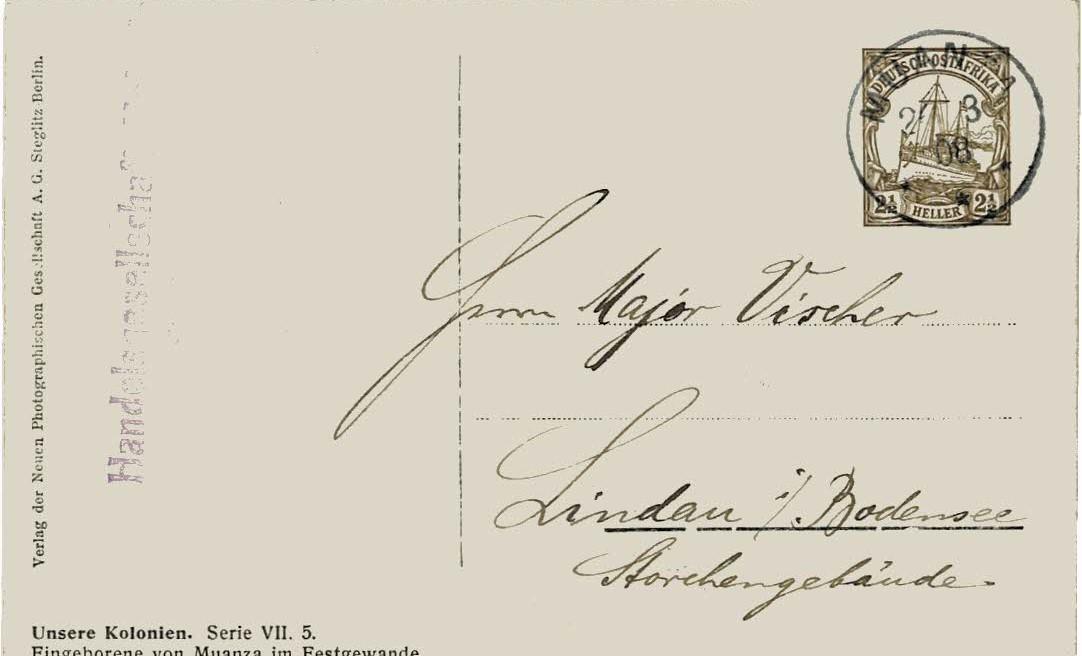 Verlag der Neuen Photographischen Gesellschaft A. G. Steglitz-Berlin.
Handelsgesellscha
MUANZA
3
08
DEUTSCH-OSTAFRIKA
2½ HELLER 2½
Herrn Major Vischer
Lindau i/. Bodensee
Storchengebäude.
Unsere Kolonien. Serie VII. 5.
Eingeborene von Muanza im Festgewande